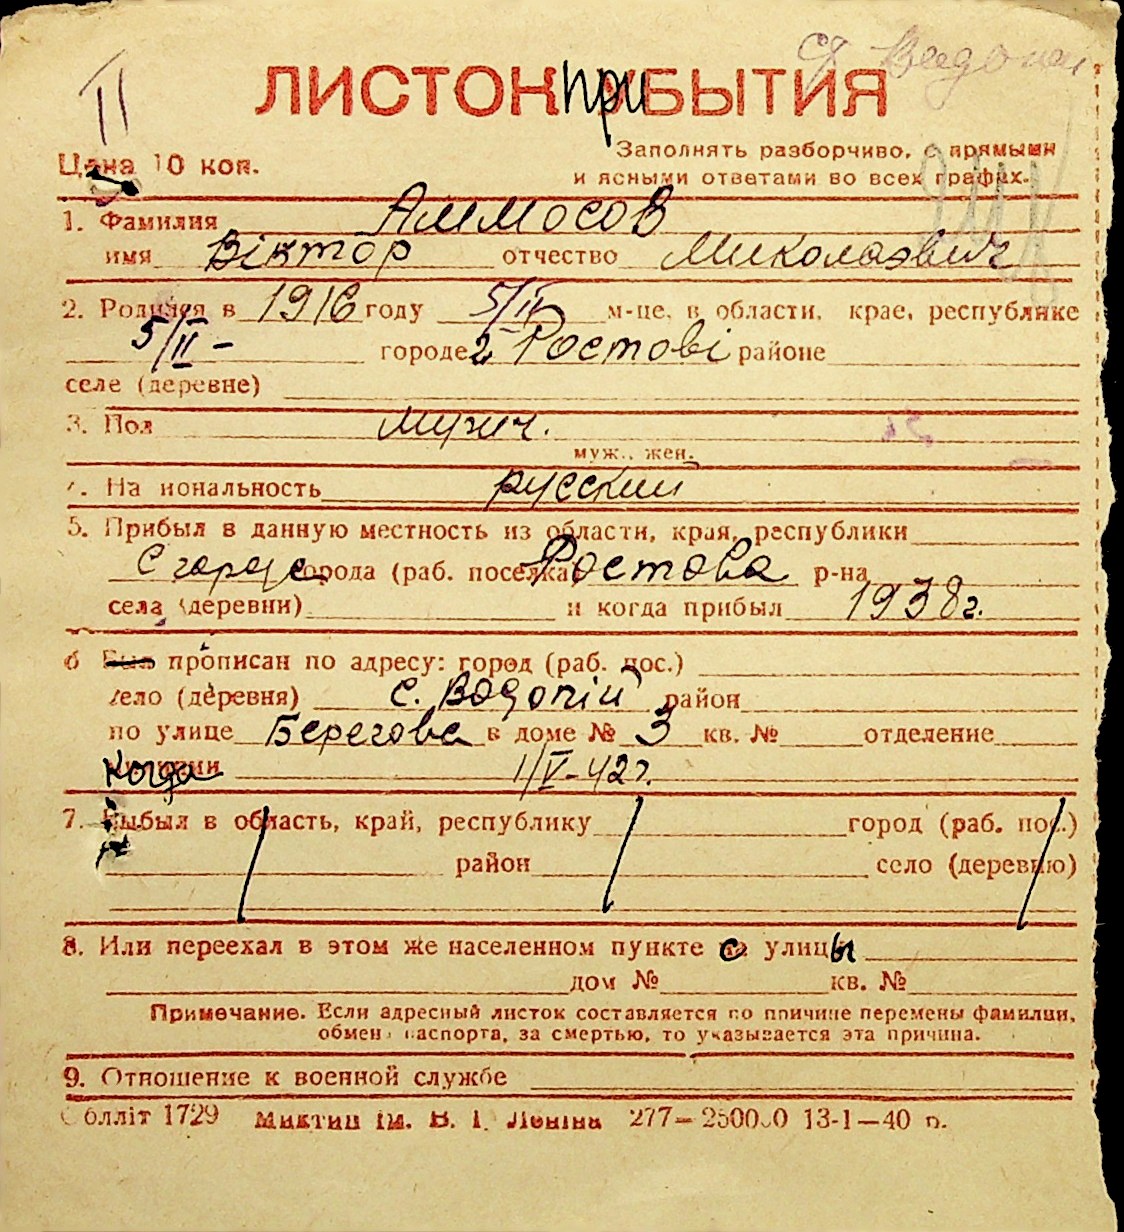 с. Водопій
II
ЛИСТОК ПРИБЫТИЯ
Цена 10 коп.
Заполнять разборчиво, с прямыми
и ясными ответами во всех графах.
1. Фамилия Аммосов
имя Віктор отчество Миколаевич
2. Родился в 1916 году 5/II м-це, в области, крае, республике
5/II – городе Ростові районе
селе (деревне)
3. Пол мужич.
муж., жен.
4. Национальность русский
5. Прибыл в данную местность из области, края, республики
С города города (раб. поселка) Ростова р-на
села (деревни) и когда прибыл 1938 г.
6 Был прописан по адресу: город (раб. пос.)
село (деревня) с. Водопій район
по улице Берегова в доме № 3 кв. № отделение
Когда 1/V-42 г.
7. Выбыл в область, край, республику город (раб. пос.)
район село (деревню)
8. Или переехал в этом же населенном пункте с улицы
дом № кв. №
Примечание. Если адресный листок составляется по причине перемены фамилии,
обмена паспорта, за смертью, то указывается эта причина.
9. Отношение к военной службе
Облліт 1729 ім. В. І. Леніна 277—250000 13-1—40 р.